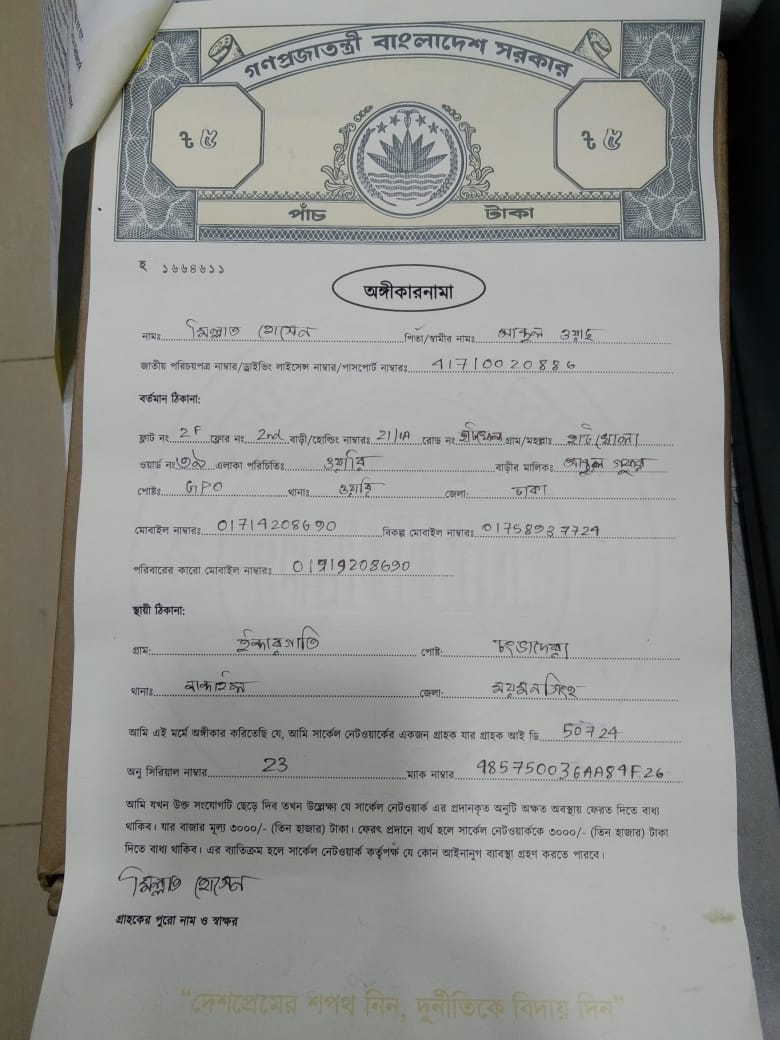 গণপ্রজাতন্ত্রী বাংলাদেশ সরকার
৳ ৫ ৳ ৫
পাঁচ টাকা
হ ১৬৬৪৬১১
অঙ্গীকারনামা
নামঃ মিল্লাত হোসেন পিতা/স্বামীর নামঃ আব্দুল ওয়াহ
জাতীয় পরিচয়পত্র নাম্বার/ড্রাইভিং লাইসেন্স নাম্বার/পাসপোর্ট নাম্বারঃ 41710020886
বর্তমান ঠিকানা:
ফ্লাট নং 2F ফ্লোর নং 2nd বাড়ী/হোল্ডিং নাম্বারঃ 21/1A রোড নং গ্রাম/মহল্লাঃ হাটখোলা
ওয়ার্ড নং ৩৯ এলাকা পরিচিতিঃ ওয়ারি বাড়ীর মালিকঃ আব্দুল গফুর
পোষ্টঃ GPO থানাঃ ওয়ারি জেলা: ঢাকা
মোবাইল নাম্বারঃ 01714208690 বিকল্প মোবাইল নাম্বারঃ 01758937724
পরিবারের কারো মোবাইল নাম্বারঃ 01919208690
স্থায়ী ঠিকানা:
গ্রাম: পোষ্ট:
থানাঃ নান্দাইল জেলা: ময়মনসিংহ
আমি এই মর্মে অঙ্গীকার করিতেছি যে, আমি সার্কেল নেটওয়ার্কের একজন গ্রাহক যার গ্রাহক আই ডি 50724
অনু সিরিয়াল নাম্বার 23 ম্যাক নাম্বার 485750036AA84F26
আমি যখন উক্ত সংযোগটি ছেড়ে দিব তখন উল্লেক্ষ্য যে সার্কেল নেটওয়ার্ক এর প্রদানকৃত অনুটি অক্ষত অবস্থায় ফেরত দিতে বাধ্য
থাকিব। যার বাজার মূল্য ৩০০০/- (তিন হাজার) টাকা। ফেরৎ প্রদানে ব্যর্থ হলে সার্কেল নেটওয়ার্ককে ৩০০০/- (তিন হাজার) টাকা
দিতে বাধ্য থাকিব। এর ব্যতিক্রম হলে সার্কেল নেটওয়ার্ক কর্তৃপক্ষ যে কোন আইনানুগ ব্যাবস্থা গ্রহণ করতে পারবে।
মিল্লাত হোসেন
গ্রাহকের পুরো নাম ও স্বাক্ষর
“দেশপ্রেমের শপথ নিন, দুর্নীতিকে বিদায় দিন”